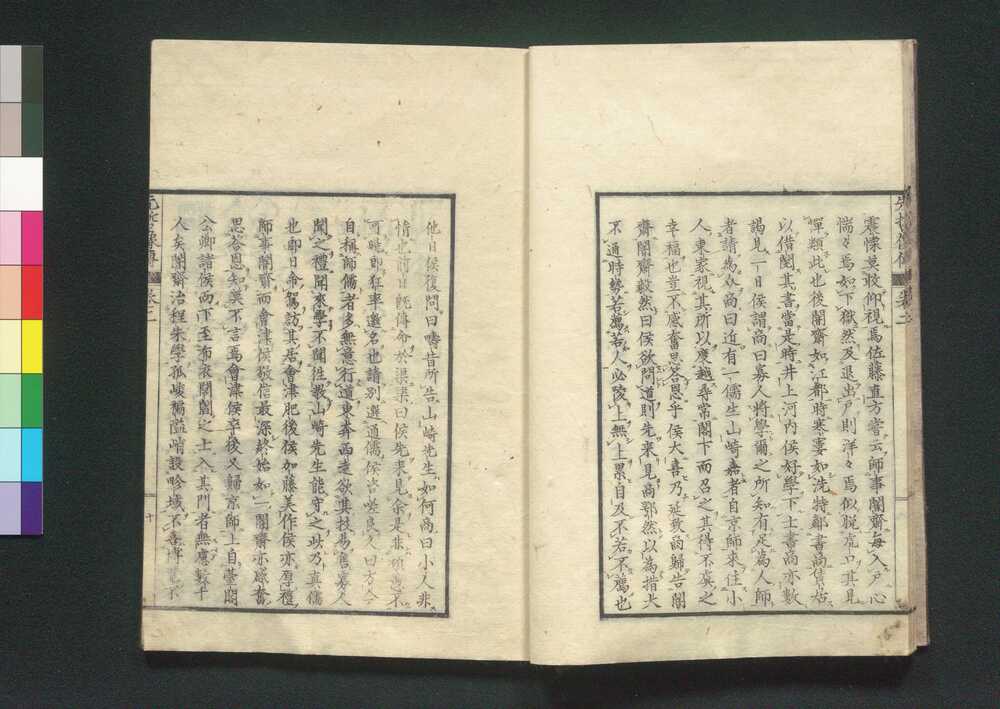 震慄莫敢仰視焉佐藤直方嘗云師事闇齋每入戶心
惴々焉如下獄然及退出戶則洋々焉似脫虎口其見
憚類此也後闇齋如江都時寒窶如洗特鄰書商僦居
以借閱其書當是時井上河內侯好學下士書商亦數
謁見一日侯謂商曰寡人將學爾之所知有足為人師
者請為介商曰近有一儒生山崎嘉者自京師來住小
人東家視其所以應越尋常閣下而召之其得不虞之
幸福也豈不感奮思答恩乎侯大喜乃延致商歸告闇
齋闇齋毅然曰侯欲問道則先來見商鄂然以為措大
不通時勢若薦若人必陵上無上累自及不若不薦也
他日侯復問曰疇昔所告山崎先生如何商曰小人非
情也前日既傳命於渠渠曰侯先來見余是非頑愚不
可曉即狂率邀名也請別選通儒侯咨嗟良久曰方今
自稱師儒者多無意行道東奔西走欲其技易售寡人
聞之禮聞來學不聞往教山崎先生能守之此乃真儒
也即日命駕訪其居會津肥後侯加藤美作侯亦厚禮
師事闇齋而會津侯敬信最深終始如一闇齋亦感奮
思答恩知莫不言焉會津侯卒後又歸京師上自臺閣
公卿諸侯而下至布衣閭閻之士入其門者無慮數千
人矣闇齋治程朱學孤峻獨隘峭設吟域不喜博
先哲像傳 卷二
十